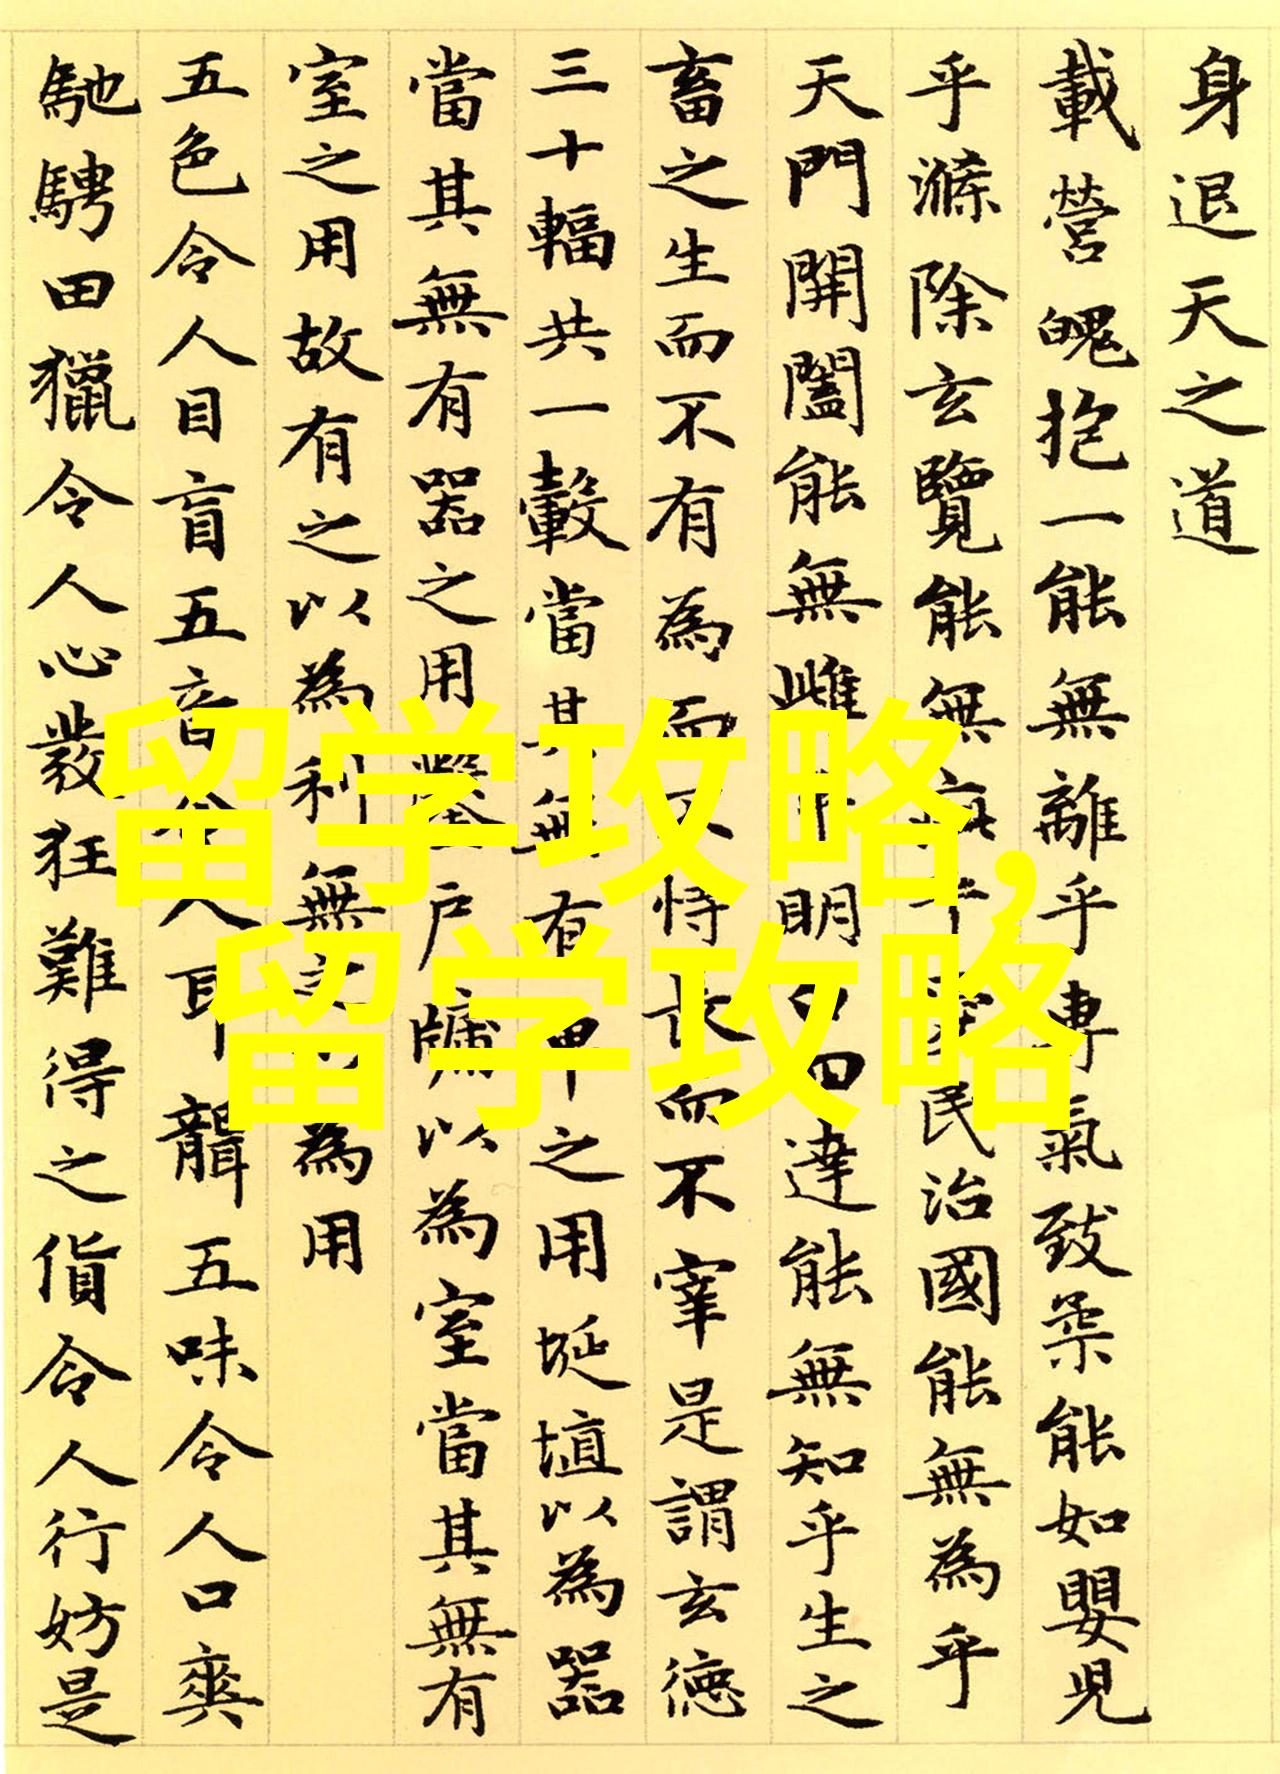 身退天之道
載營魄抱一能無離乎專氣致柔能如嬰兒
乎滌除玄覽能無疵乎愛民治國能無為乎
天門開闔能無雌乎明白四達能無知乎生之
畜之生而不有為而不恃長而不宰是謂玄德
三十輻共一轂當其無有車之用埏埴以為器
當其無有器之用鑿戶牖以為室當其無有
室之用故有之以為利無之以為用
五色令人目盲五音令人耳聾五味令人口爽
馳騁田獵令人心發狂難得之貨令人行妨是
留学攻略,
留学攻略